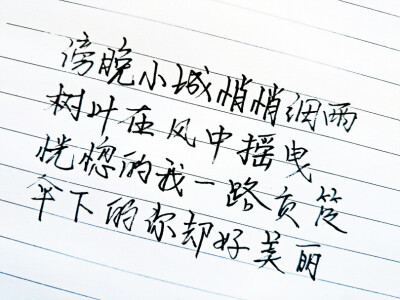 傍晚小城悄悄细雨
树叶在风中摇曳
恍惚的我一路负笈
伞下的你却好美丽